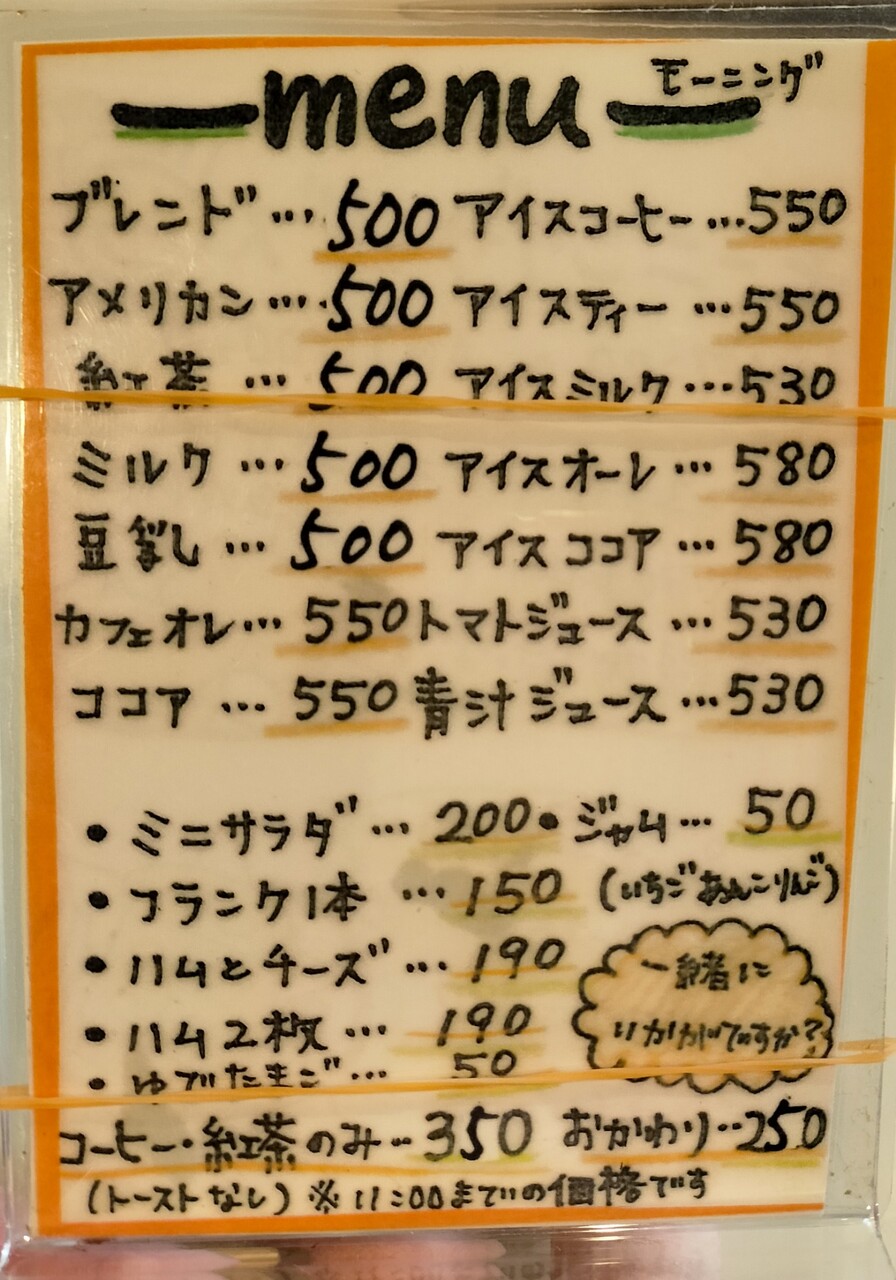 menu モーニング
ブレンド…500 アイスコーヒー…550
アメリカン…500 アイスティー…550
紅茶…500 アイスミルク…530
ミルク…500 アイスオーレ…580
豆乳…500 アイスココア…580
カフェオレ…550 トマトジュース…530
ココア…550 青汁ジュース…530
・ミニサラダ…200 ・ジャム…50
・フランク1本…150 (いちご あんこ りんご)
・ハムとチーズ…190
・ハム2枚…190
・ゆでたまご…50
一緒に
いかがですか?
コーヒー・紅茶のみ…350 おかわり…250
(トーストなし) ※11:00までの価格です